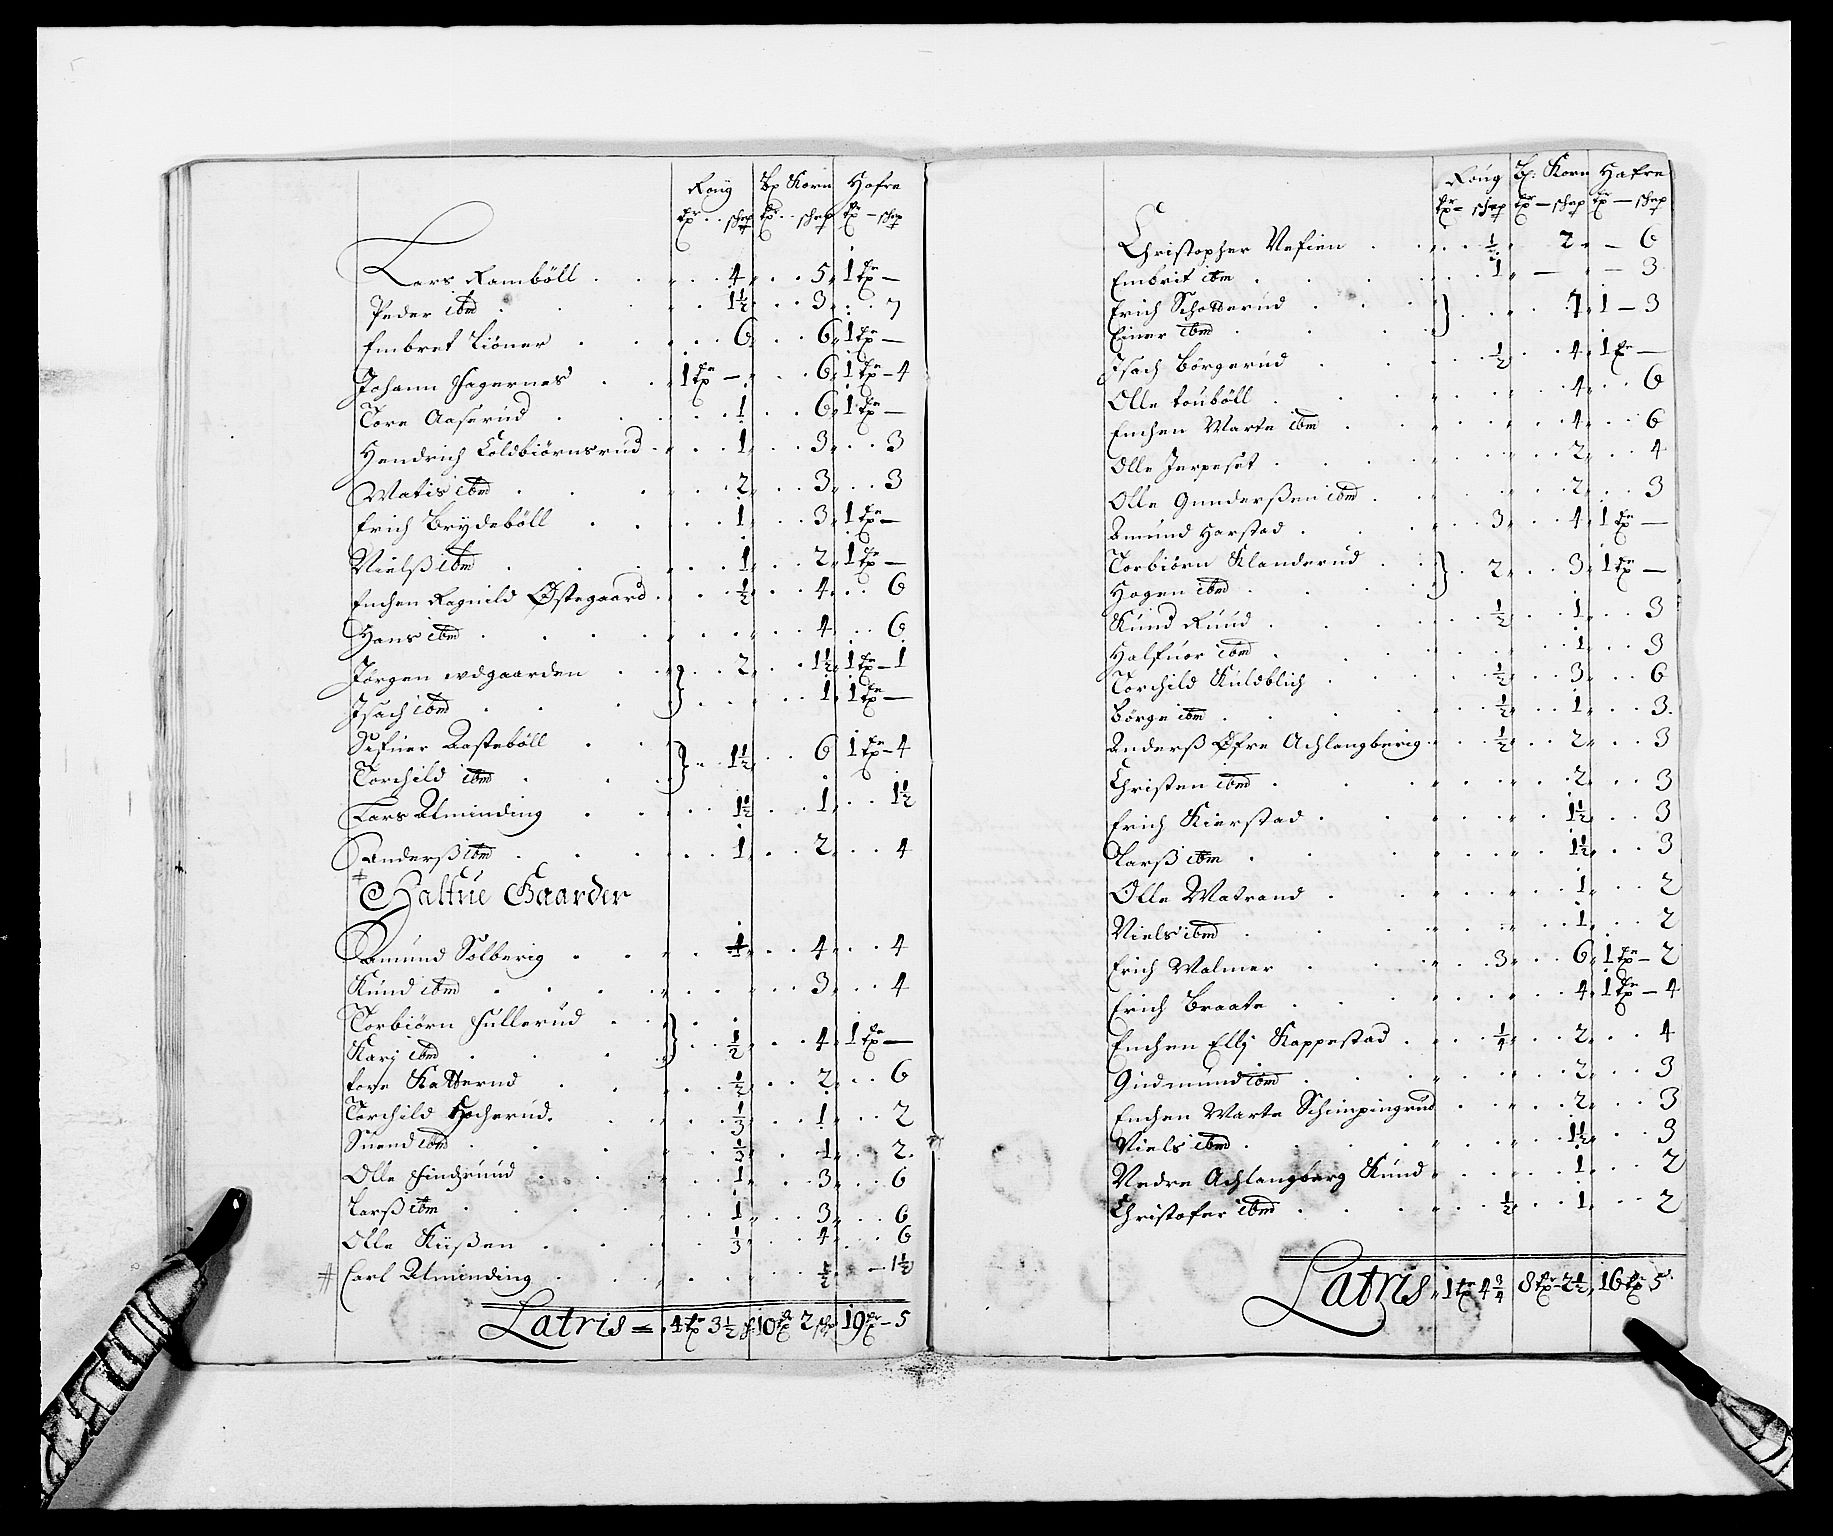 Roug Bÿ Korn Hafre
tr . . schep tr . . schep tr — schep
Lars Ramböll . . . . 4 . . 5 1 tr —
Peder ibm . . . . 1½ . . 3 . . 7
Embret Liöner . . . . 6 . . 6 1 tr —
Johann Fagernes . . 1 tr — . . 6 1 tr — 4
Tore Aaserud . . . . 1 . . 6 1 tr —
Hendrich Coldbiörnsrud . . . 1 . . 3 . . 3
Matis ibm . . . . 2 . . 3 . . 3
Erich Brydeböll . . . . 1 . . 3 1 tr —
Nielß ibm . . . . 1 . . 2 1 tr —
Enchen Ragnild Østegaard . . . ½ . . 4 . . 6
Hans ibm . . . . . . 4 . . 6
Jörgen wdgaarden . . } . . 2 . . 1½ 1 tr — 1
Isach ibm . . . } . . . . 1 1 tr —
Sifuer Aasteböll . . } . . 1½ . . 6 1 tr — 4
Torchild ibm . . }
Lars Alminding . . . . 1½ . . 1 . . 1½
Anderß ibm . . . . 1 . . 2 . . 4
# Halfue Gaarder
Amund Solberig . . . . 1 . . 4 . . 4
Knud ibm . . . . . . 3 . . 4
Torbiörn Fullerud . . } . .
Karj ibm . . } . . ½ . . 4 1 tr —
Tore Katterud . . . . ½ . . 2 . . 6
Torchild Hocherud . . . ⅓ . . 1 . . 2
Suend ibm . . . . ⅓ . . 1 . . 2
Olle Findsrud . . . . 1 . . 3 . . 6
Larß ibm . . . . 1 . . 3 . . 6
Olle Küßen . . . . ⅓ . . 4 . . 6
# Carl Alminding . . . . . . ½ . — 1½
Latris = . 4 tr 3½ s 10 tr 2 schp 19 tr — 5
Roug B: Korn Hafre
tr — schep tr — schep tr — schep
Christopher Vefien . . . . ½ 2 — 6
Embrit ibm . . . . 1 — — 3
Erich Schotterud . . } . . . 7 1 — 3
Einer ibm . . . }
Isach Börgerud . . . . ½ . . 4 1 tr —
Olle touböll . . . . . . 4 . . 6
Enchen Marte ibm . . . . . 4 . . 6
Olle Jerpeset . . . . . . 2 . . 4
Olle Gunderßen ibm . . . . . 2 . . 3
Amund Harstad . . . . 3 . . 4 1 tr —
Torbiörn Klanderud . . } . 2 . . 3 1 tr —
Hogen ibm . . . }
Knud Ruud . . . . ½ . . 1 . . 3
Halfuor ibm . . . . . 1 . . 3
Torchild Kuldblich . . . . ½ . . 3 . . 6
Börge ibm . . . . ½ . . 1 . . 3
Anderß Øfre Achlangberig . . . ½ . . 2 . . 3
Christen ibm . . . . . . 2 . . 3
Erich Kierstad . . . . . . 1½ . . 3
Larß ibm . . . . . . 1½ . . 3
Olle Matrand . . . . . 1 . . 2
Niels ibm . . . . . . 1 . . 2
Erich Malmer . . . . 3 . . 6 1 tr — 2
Erich Braate . . . . . . 4 1 tr — 4
Enchen Ellj Kappestad . . . ¼ . . 2 . . 4
Gudmund ibm . . . . . . 2 . . 3
Enchen Marte Schimpingrud . . . 2 . . 3
Niels ibm . . . . . . 1½ . . 3
Nedre Achlangberg Knud . . . . 1 . . 2
Christofer ibm . . . . ½ . . 1 . . 2
Latris . 1 tr 4¾ 8 tr — 2½ 16 tr 5